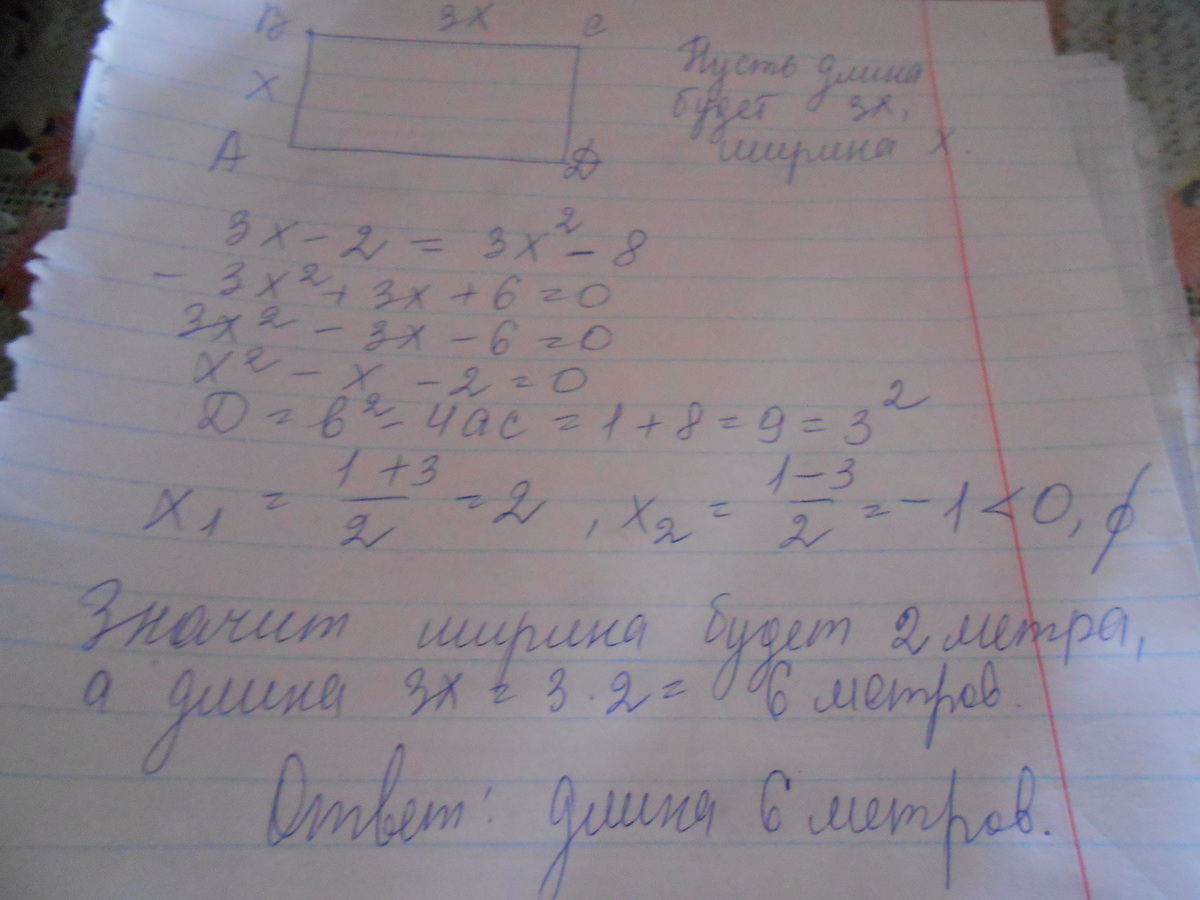 B 3x C
x
A D
Пусть длина
будет 3x,
ширина x.
3x - 2 = 3x² - 8
- 3x² + 3x + 6 = 0
3x² - 3x - 6 = 0
x² - x - 2 = 0
D = b² - 4ac = 1 + 8 = 9 = 3²
x₁ = (1 + 3)/2 = 2, x₂ = (1 - 3)/2 = -1 < 0, ∅
Значит ширина будет 2 метра,
а длина 3x = 3 · 2 = 6 метров.
Ответ: длина 6 метров.